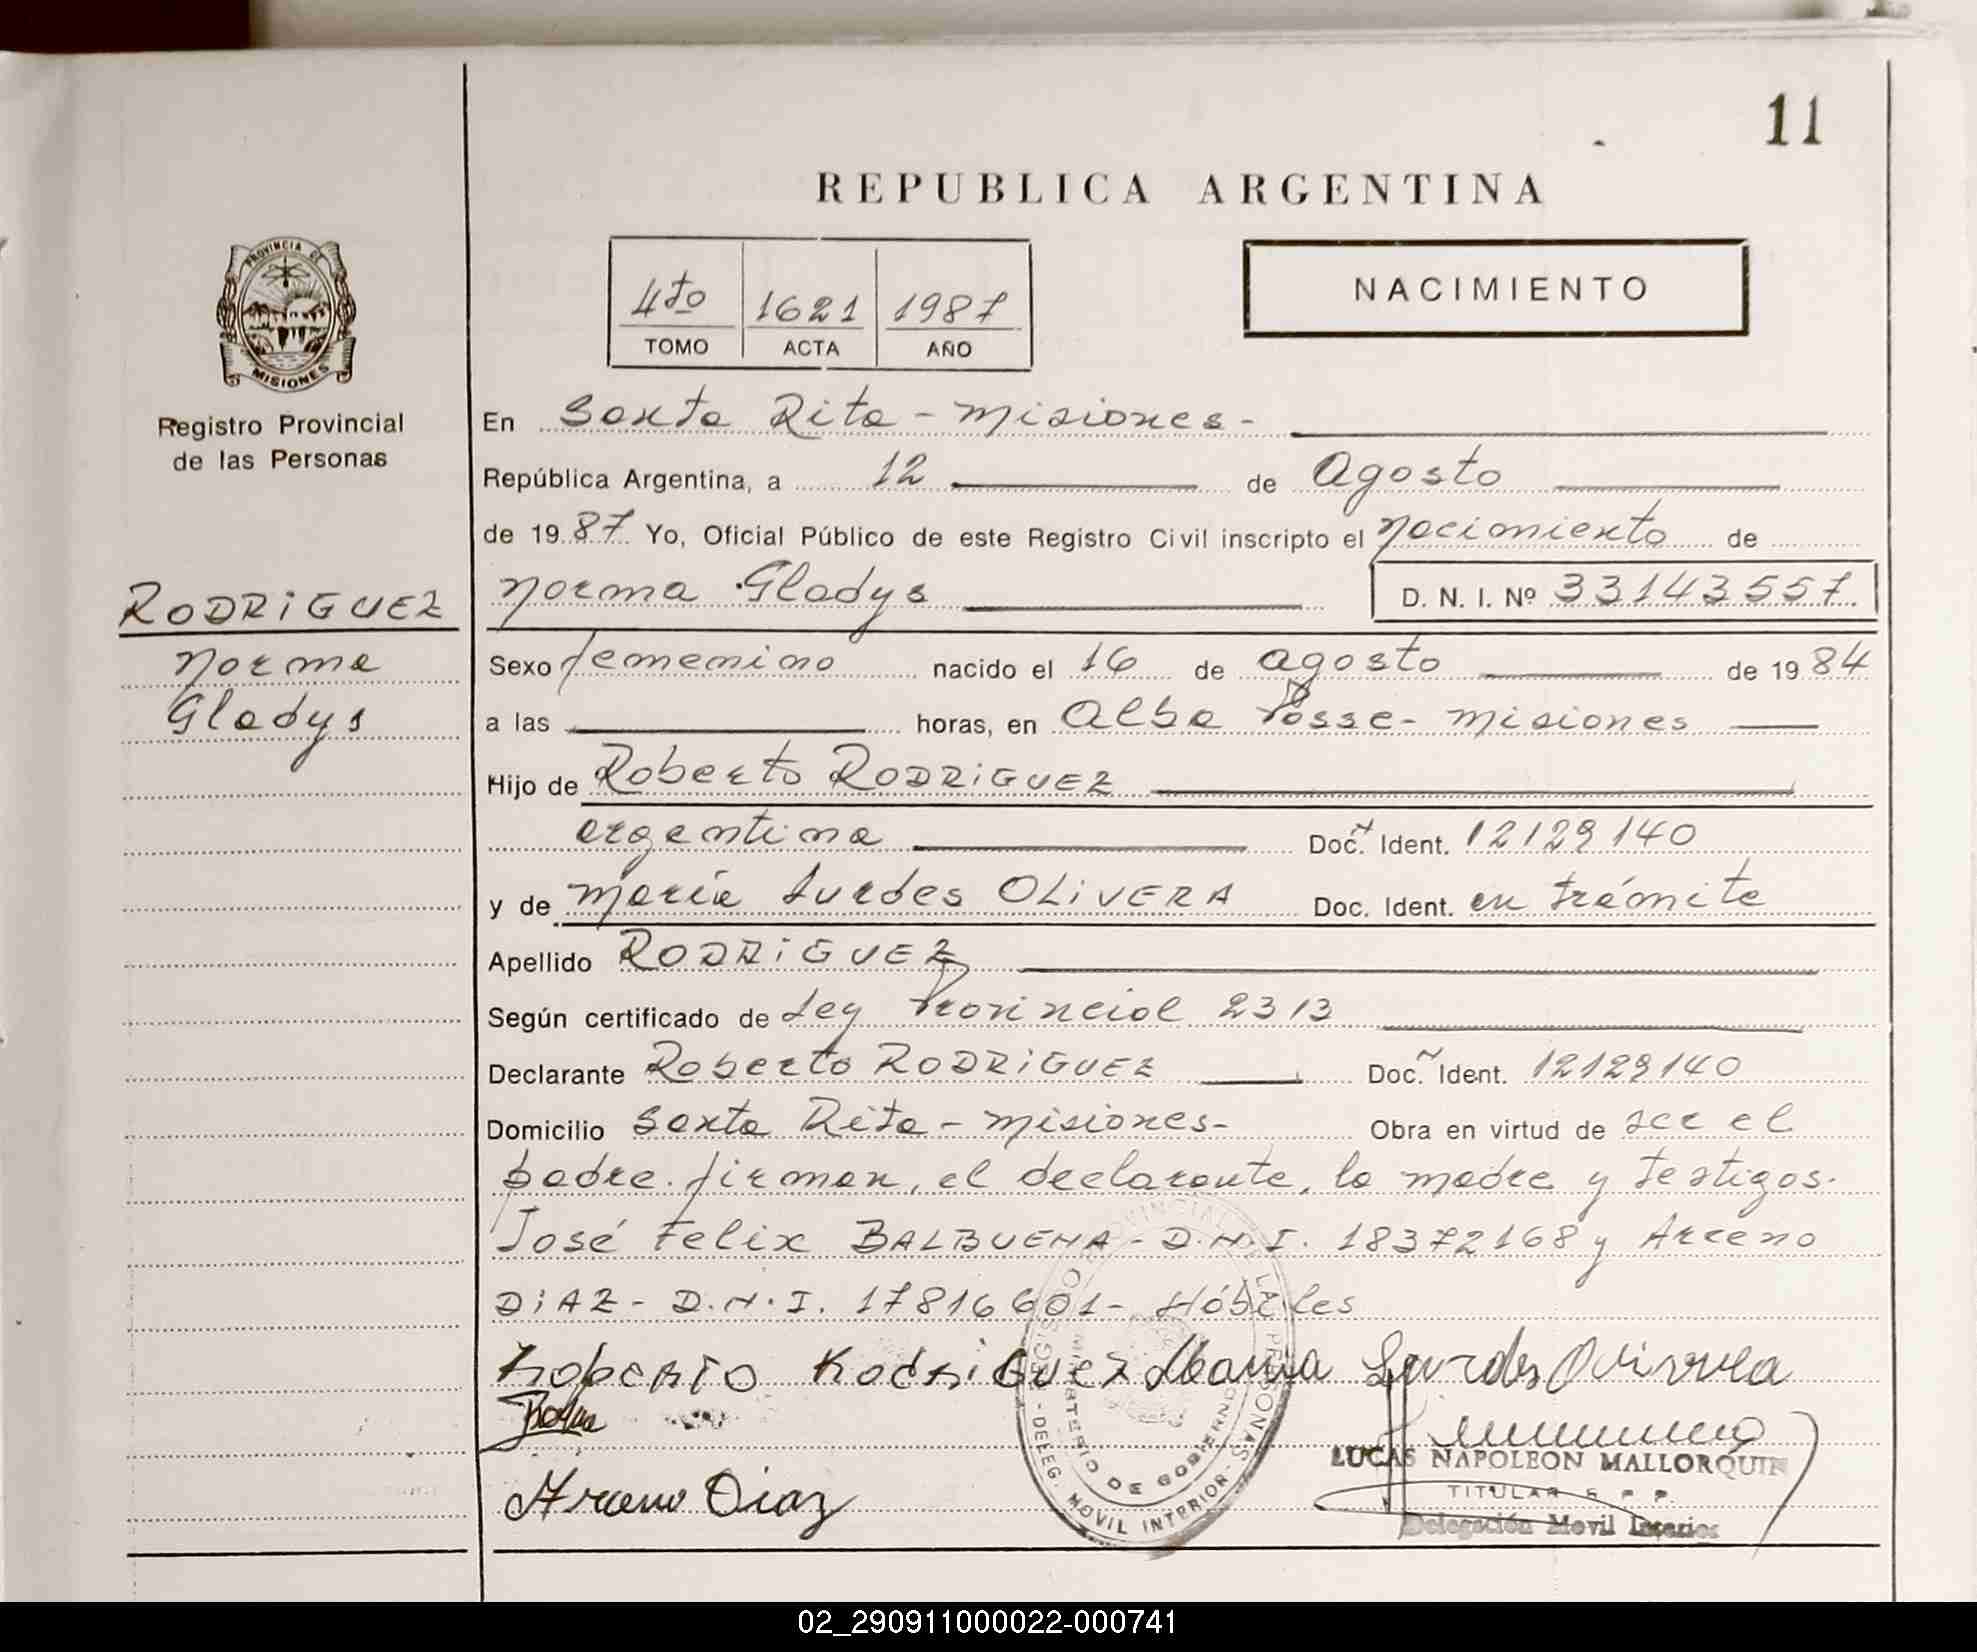 11
REPUBLICA ARGENTINA
4to 1621 1987
TOMO ACTA AÑO
NACIMIENTO
PROVINCIA DE
MISIONES
Registro Provincial
de las Personas
RODRIGUEZ
Norma
Gladys
En Santa Rita - Misiones -
República Argentina, a 12 de Agosto
de 1987 Yo, Oficial Público de este Registro Civil inscripto el Nacimiento de
Norma Gladys D. N. I. Nº 33143557.
Sexo femenino nacido el 16 de agosto de 1984
a las horas, en Alba Posse - Misiones
Hijo de Roberto RODRIGUEZ
argentina Doc. Ident. 12129140
y de María Lurdes OLIVERA Doc. Ident. en trámite
Apellido RODRIGUEZ
Según certificado de Ley Provincial 2313
Declarante Roberto RODRIGUEZ Doc. Ident. 12129140
Domicilio Santa Rita - Misiones - Obra en virtud de ser el
padre. firman, el declarante, la madre y testigos.
José Felix BALBUENA - D.N.I. 18372168 y Arceno
DIAZ - D.N.I. 17816601 - Hábiles
Roberto Rodriguez Maria Lurdes Olivera
Arceno Diaz
MINISTERIO DE GOBIERNO
DELEG. MOVIL INTERIOR -
LUCAS NAPOLEON MALLORQUIN
TITULAR
Delegación Movil Interior
02_290911000022-000741